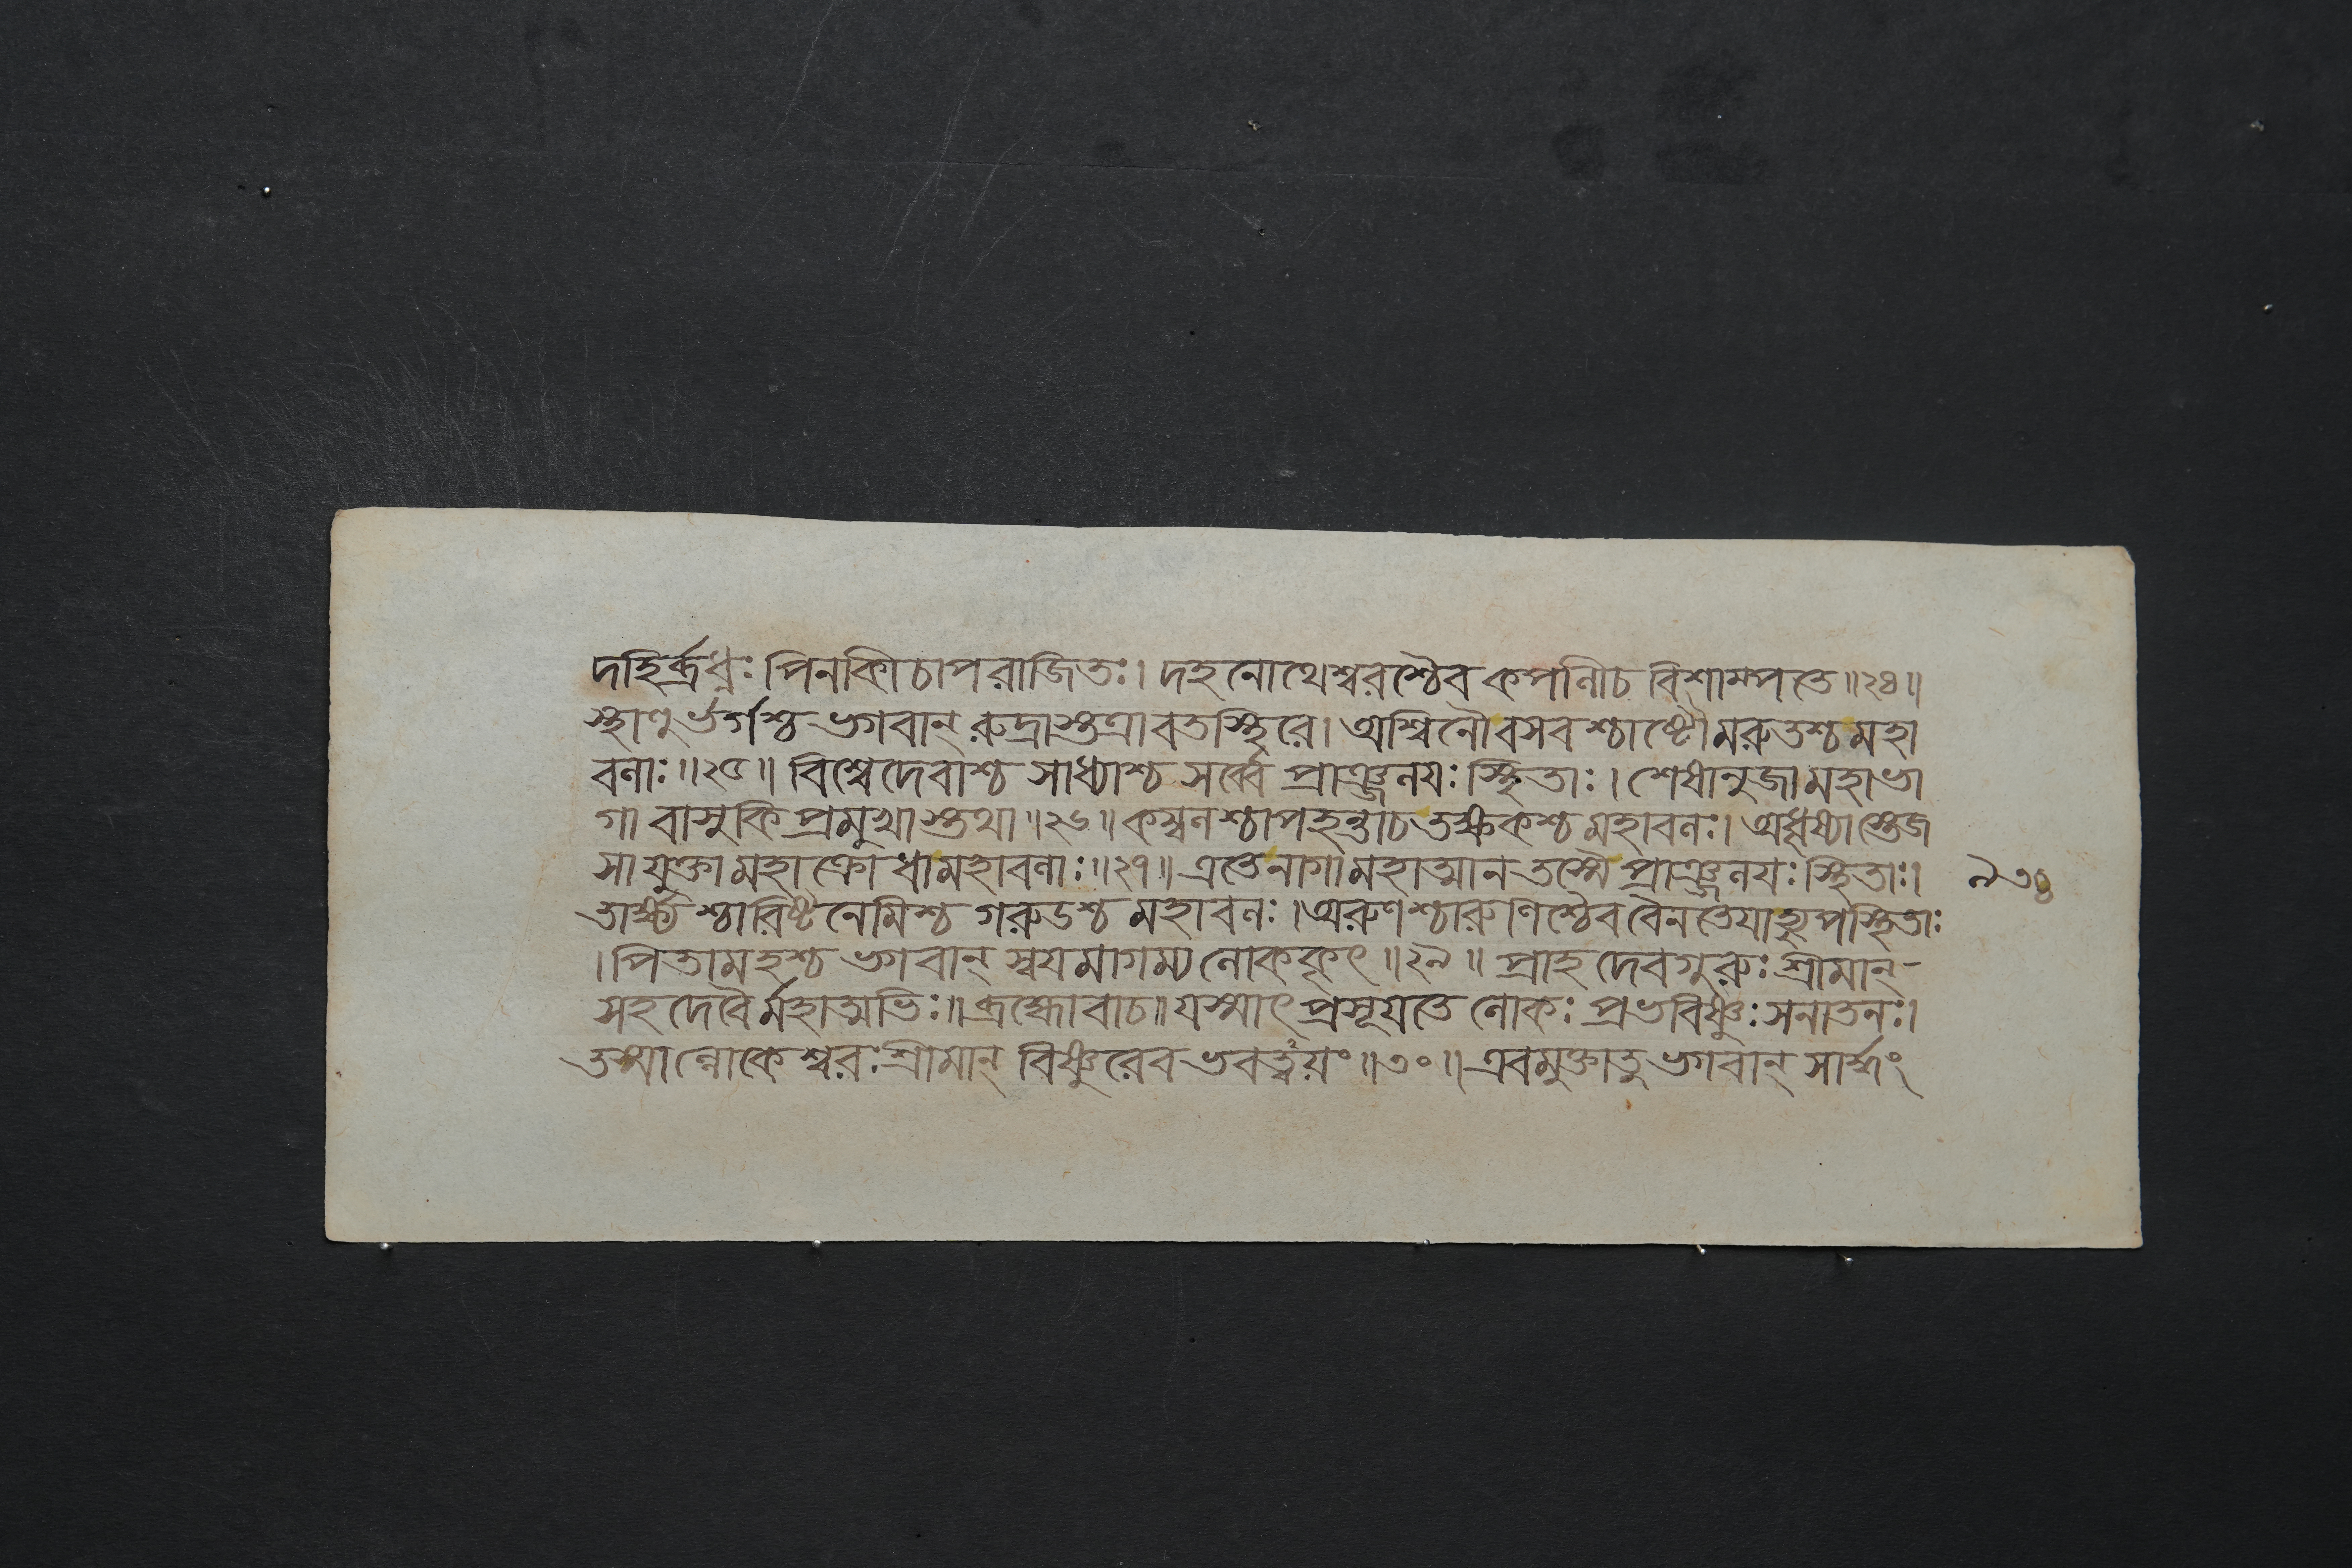 দহির্ব্রধ্নঃ পিনাকী চাপরাজিতঃ। দহনোথেশ্বরশ্চৈব কপালীচ বিশাম্পতে॥২৪॥
স্থাণুর্ভর্গশ্চ ভগবান্ রুদ্রাস্তত্রাবতস্থিরে। অশ্বিনৌ বসবশ্চাষ্টৌ মরুতশ্চ মহা
বলাঃ॥২৫॥ বিশ্বেদেবাশ্চ সাধ্যাশ্চ সর্ব্বে প্রাঞ্জলয়ঃ স্থিতাঃ। শেষানুজা মহাভা
গা বাসুকি প্রমুখাস্তথা॥২৬॥ কম্বলশ্চাপহন্তাচ তক্ষকশ্চ মহাবলঃ। অধৃষ্যাস্তেজ
সা যুক্তা মহাক্রোধা মহাবলাঃ॥২৭॥ এতে নাগা মহাত্মান তস্মৈ প্রাঞ্জলয়ঃ স্থিতাঃ।
তার্ক্ষ্যশ্চারিষ্টনেমিশ্চ গরুডশ্চ মহাবলঃ। অরুণশ্চারুণিশ্চৈব বৈনতেয়াহ্যুপস্থিতাঃ
। পিতামহশ্চ ভগবান্ স্বয়মাগম্য লোককৃৎ॥২৯॥ প্রাহ দেবগুরুঃ শ্রীমান্-
সহ দেবৈর্মহাত্মভিঃ॥ ব্রহ্মোবাচ॥ যস্মাৎ প্রসূয়তে লোকঃ প্রভবিষ্ণুঃ সনাতনঃ।
তস্মাল্লোকেশ্বরঃ শ্রীমান্ বিষ্ণুরেব ভবত্বয়ং॥৩০॥ এবমুক্তাতু ভগবান্ সার্দ্ধং
৯৩৪